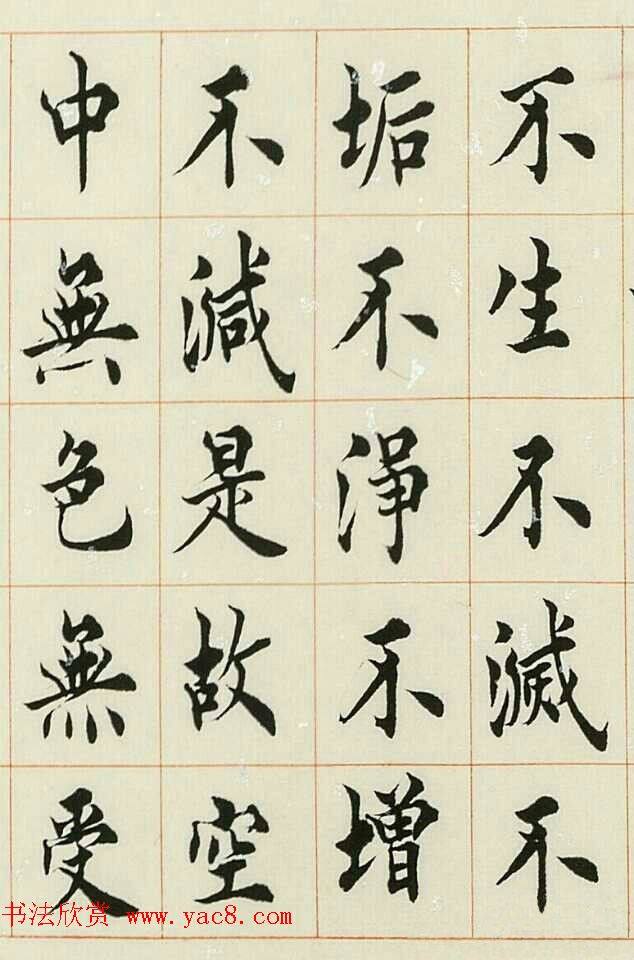 不生不滅不
垢不淨不增
不減是故空
中無色無受
书法欣赏 www.yac8.com